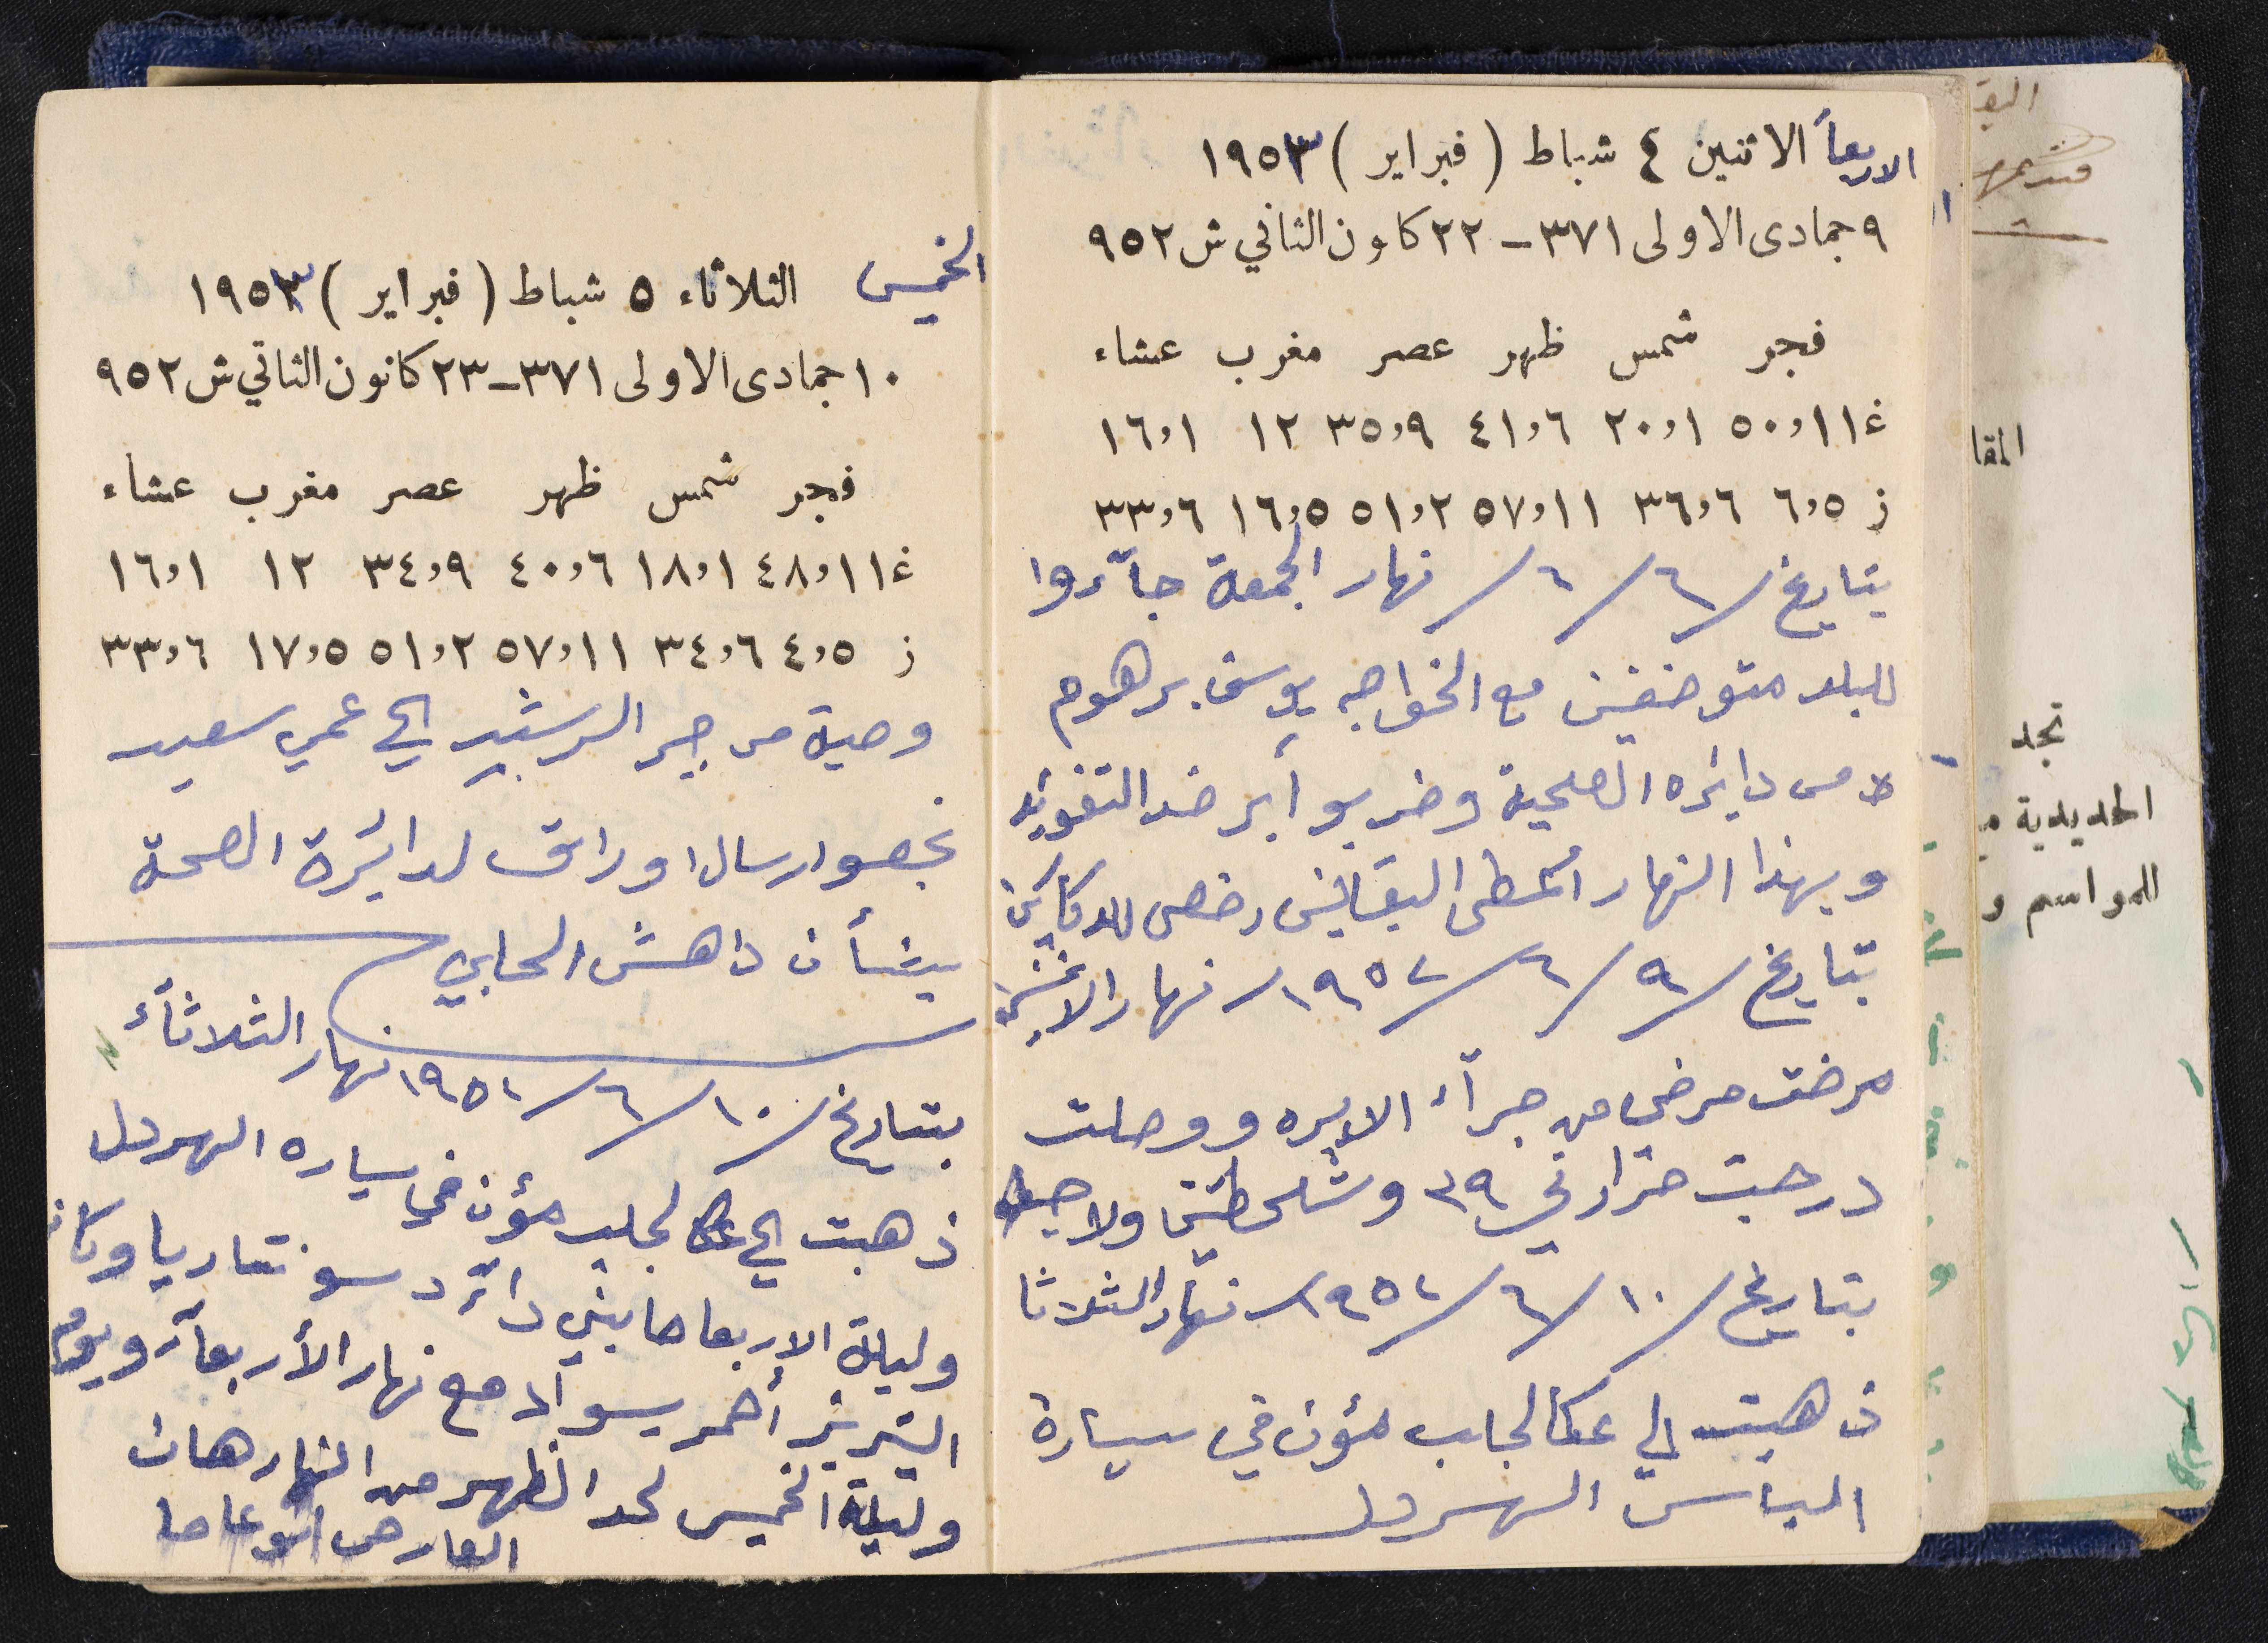 الاربعاً الاثنين ٤ شباط ( فبراير ) ١٩٥٣
٩ جمادى الاولى ٣٧١ - ٢٢ كانون الثاني ش ٩٥٢
فجر شمس ظهر عصر مغرب عشاء
غ ١١،٥٠ ١،٢٠ ٦،٤١ ٩،٣٥ ١٢ ١،١٦
ز ٥،٦ ٦،٣٦ ١١،٥٧ ٢،٥١ ٥،١٦ ٦،٣٣
بتاريخ /٦/٦/ نهار الجمعة جآءوا
للبلد متوضفين مع الخواجه يوسف برهوم
من دايره الصحية وضربو أبر ضد التفوئيد
وبهذا النهار البقاليس رخص للدكاكين
بتاريخ /٩/٦/١٩٥٢ نهار الاثنين
مرضت مرض من جرآء الابره ووصلت
درجت حرارتي ٣٩ وشحطتين ولا
بتاريخ /١٠/٦/١٩٥٢ نهار الثلاثا
ذهبت الى عكا لجلب مؤن في سيارة
الباس الهردل
الخميس الثلاثاء ٥ شباط ( فبراير ) ١٩٥٣
١٠ جمادى الاولى ٣٧١ - ٢٣ كانون الثاني ش ٩٥٢
فجر شمس ظهر عصر مغرب عشاء
غ ١١،٤٨ ١،١٨ ٦،٤٠ ٩،٣٤ ١٢ ١،١٦
ز ٥،٤ ٦،٣٤ ١١،٥٧ ٢،٥١ ٥،١٧ ٦،٣٣
وصية من جبر الرشيد الى عمي سعيد
بخصو ارسال اوراق لدائرة الصحة
بشأن داهش الحابي
بتاريخ /١٠/٦/١٩٥٢ نهار الثلاثآء
ذهبت الى عكا لجلب مؤن في سياره الهردل
وليلة الاربعا صابني دآء دسونتاريا وكان
أحمر بسواد مع نهار الأربعآء ويوم
وليلة الخميس لحد الظهر من النهار
العارض